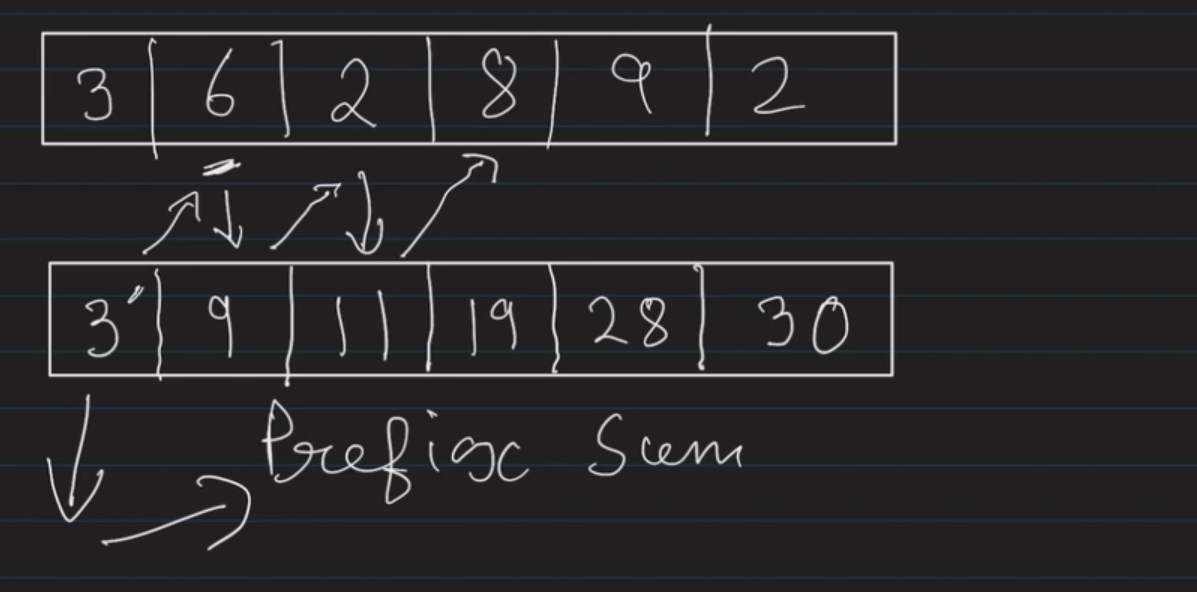 3 6 2 8 9 2
3 9 11 19 28 30
Prefix Sum